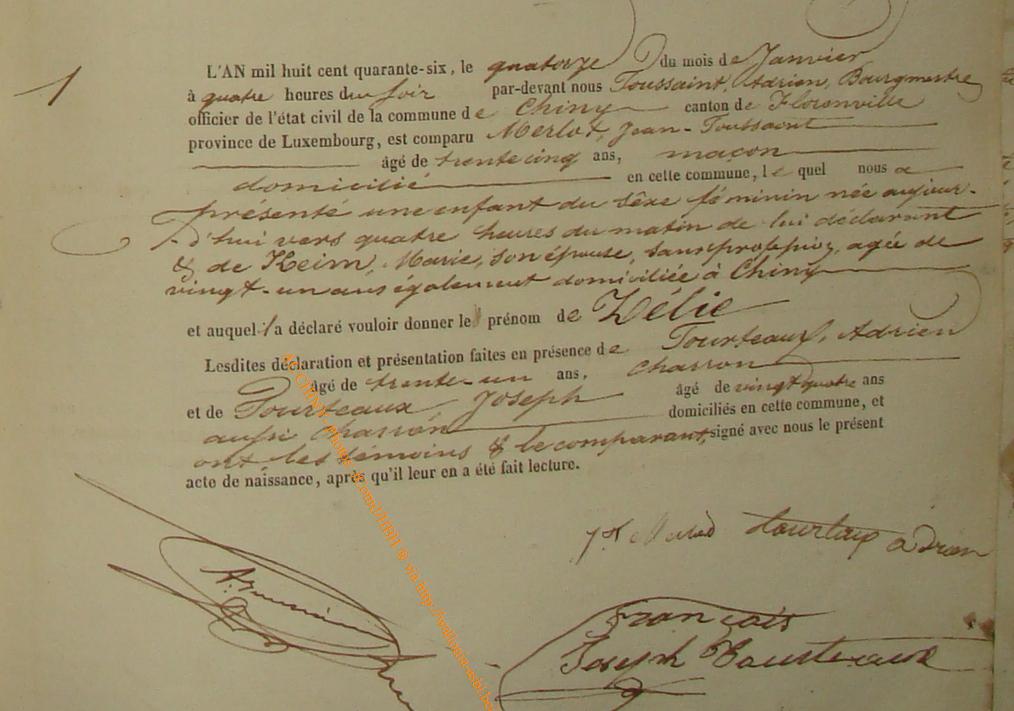 1
L'AN mil huit cent quarante-six, le quatorze du mois de Janvier
à quatre heures du soir par-devant nous Toussaint, Adrien, Bourgmestre
officier de l'état civil de la commune de Chiny canton de Florenville
province de Luxembourg, est comparu Merlot, Jean-Toussaint
âgé de trente cinq ans, maçon
domicilié en cette commune, le quel nous a
présenté une enfant du sèxe féminin née aujour-
d'hui vers quatre heures du matin de lui déclarant
& de Keim, Marie, son épouse, sans profession, agée de
vingt-un ans également domiciliée à Chiny
et auquel il a déclaré vouloir donner le prénom de Zélie
Lesdites déclaration et présentation faites en présence de Tourteaux, Adrien
âgé de trente-un ans, charron
et de Tourteaux, Joseph âgé de vingt quatre ans
aussi charron domiciliés en cette commune, et
ont, les témoins & le comparant, signé avec nous le présent
acte de naissance, après qu'il leur en a été fait lecture.
tourtaux adrien
François
Joseph Tourteaux